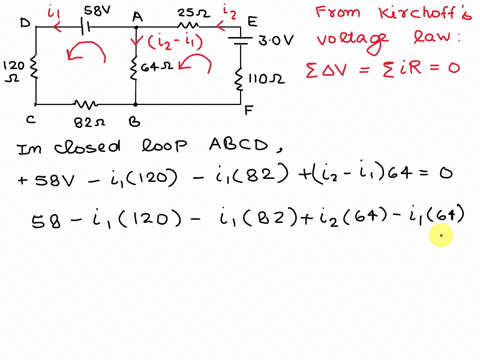 i₁ 58V A 25Ω i₂
D E
(i₂ - i₁) 3.0V
120 Ω 64Ω 110Ω
C 82Ω B F
From Kirchoff's
voltage law:
ΣΔV = ΣiR = 0
In closed loop ABCD,
+58V - i₁(120) - i₁(82) + (i₂ - i₁)64 = 0
58 - i₁(120) - i₁(82) + i₂(64) - i₁(64)